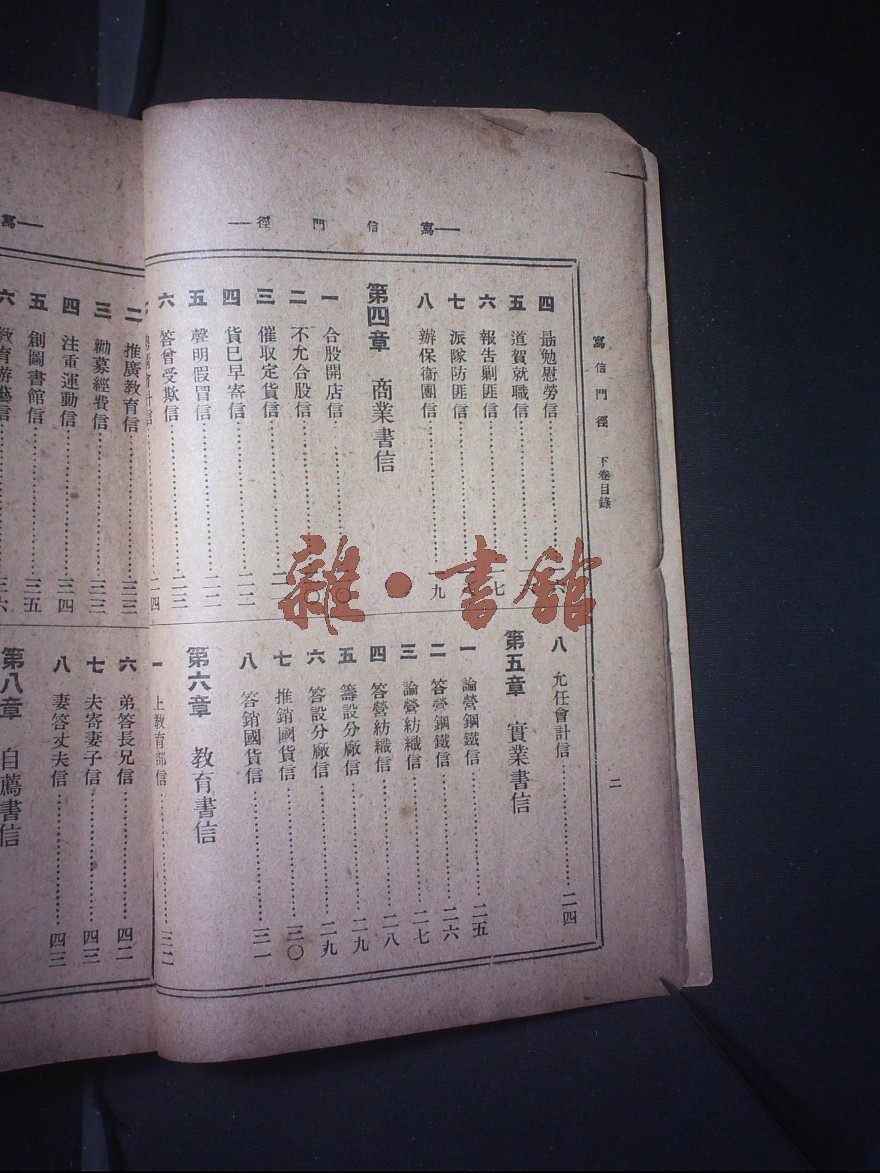 寫信門徑
寫信門徑 下卷目錄
二
四 勗勉慰勞信
五 道賀就職信
六 報告剿匪信
七 派隊防匪信
八 辦保衞團信 九
第四章 商業書信
一 合股開店信
二 不允合股信
三 催取定貨信
四 貨已早寄信 二二
五 聲明假冒信 二二
六 答曾受欺信 二三
二四
八 允任會計信 二四
第五章 實業書信
一 論營鋼鐵信 二五
二 答營鋼鐵信 二六
三 論營紡織信 二七
四 答營紡織信 二八
五 籌設分廠信 二九
六 答設分廠信 二九
七 推銷國貨信 三〇
八 答銷國貨信 三一
第六章 教育書信
一 上教育部信 三二
寫
二 推廣教育信 三三
三 勸募經費信 三三
四 注重運動信 三四
五 創圖書館信 三五
六 教育游藝信 三六
六 弟答長兄信 四二
七 夫寄妻子信 四三
八 妻答丈夫信 四三
第八章 自薦書信
雜·書館